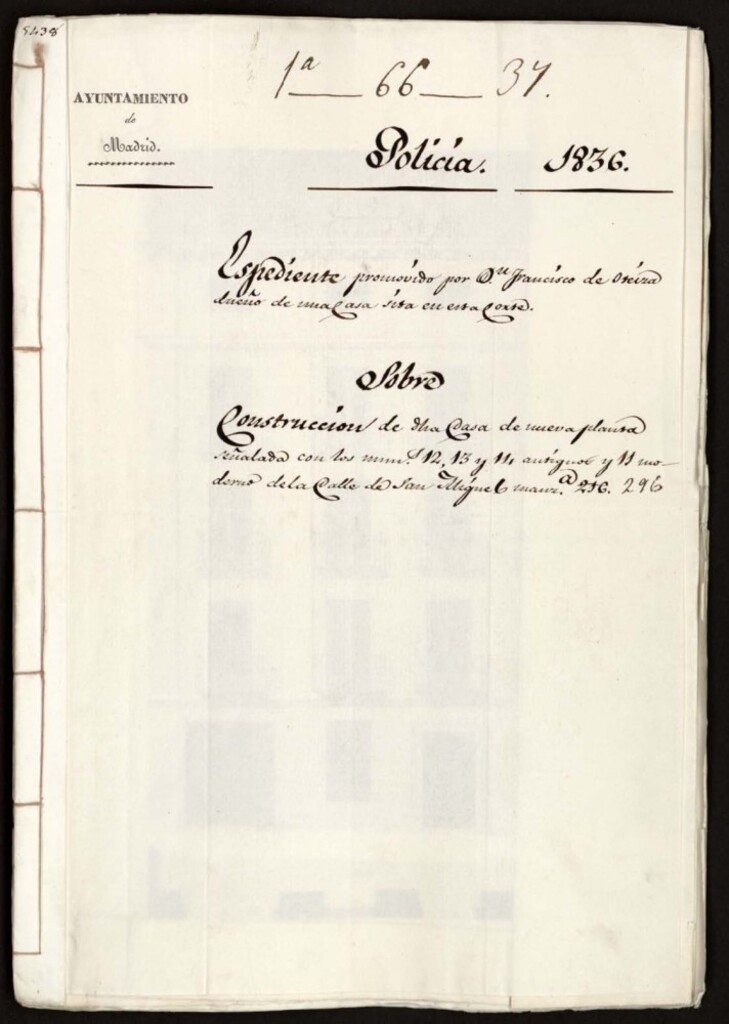 5438
1ª — 66 — 37.
AYUNTAMIENTO
de
Madrid.
Policía. 1836.
Espediente promovido por Dn Francisco de Oteiza
dueño de una Casa sita en esta Corte.
Sobre
Construccion de dha Casa de nueva planta
señalada con los num.s 12, 13 y 14 antiguos y 11 mo-
derno de la Calle de San Miguel manz.a 296. 296